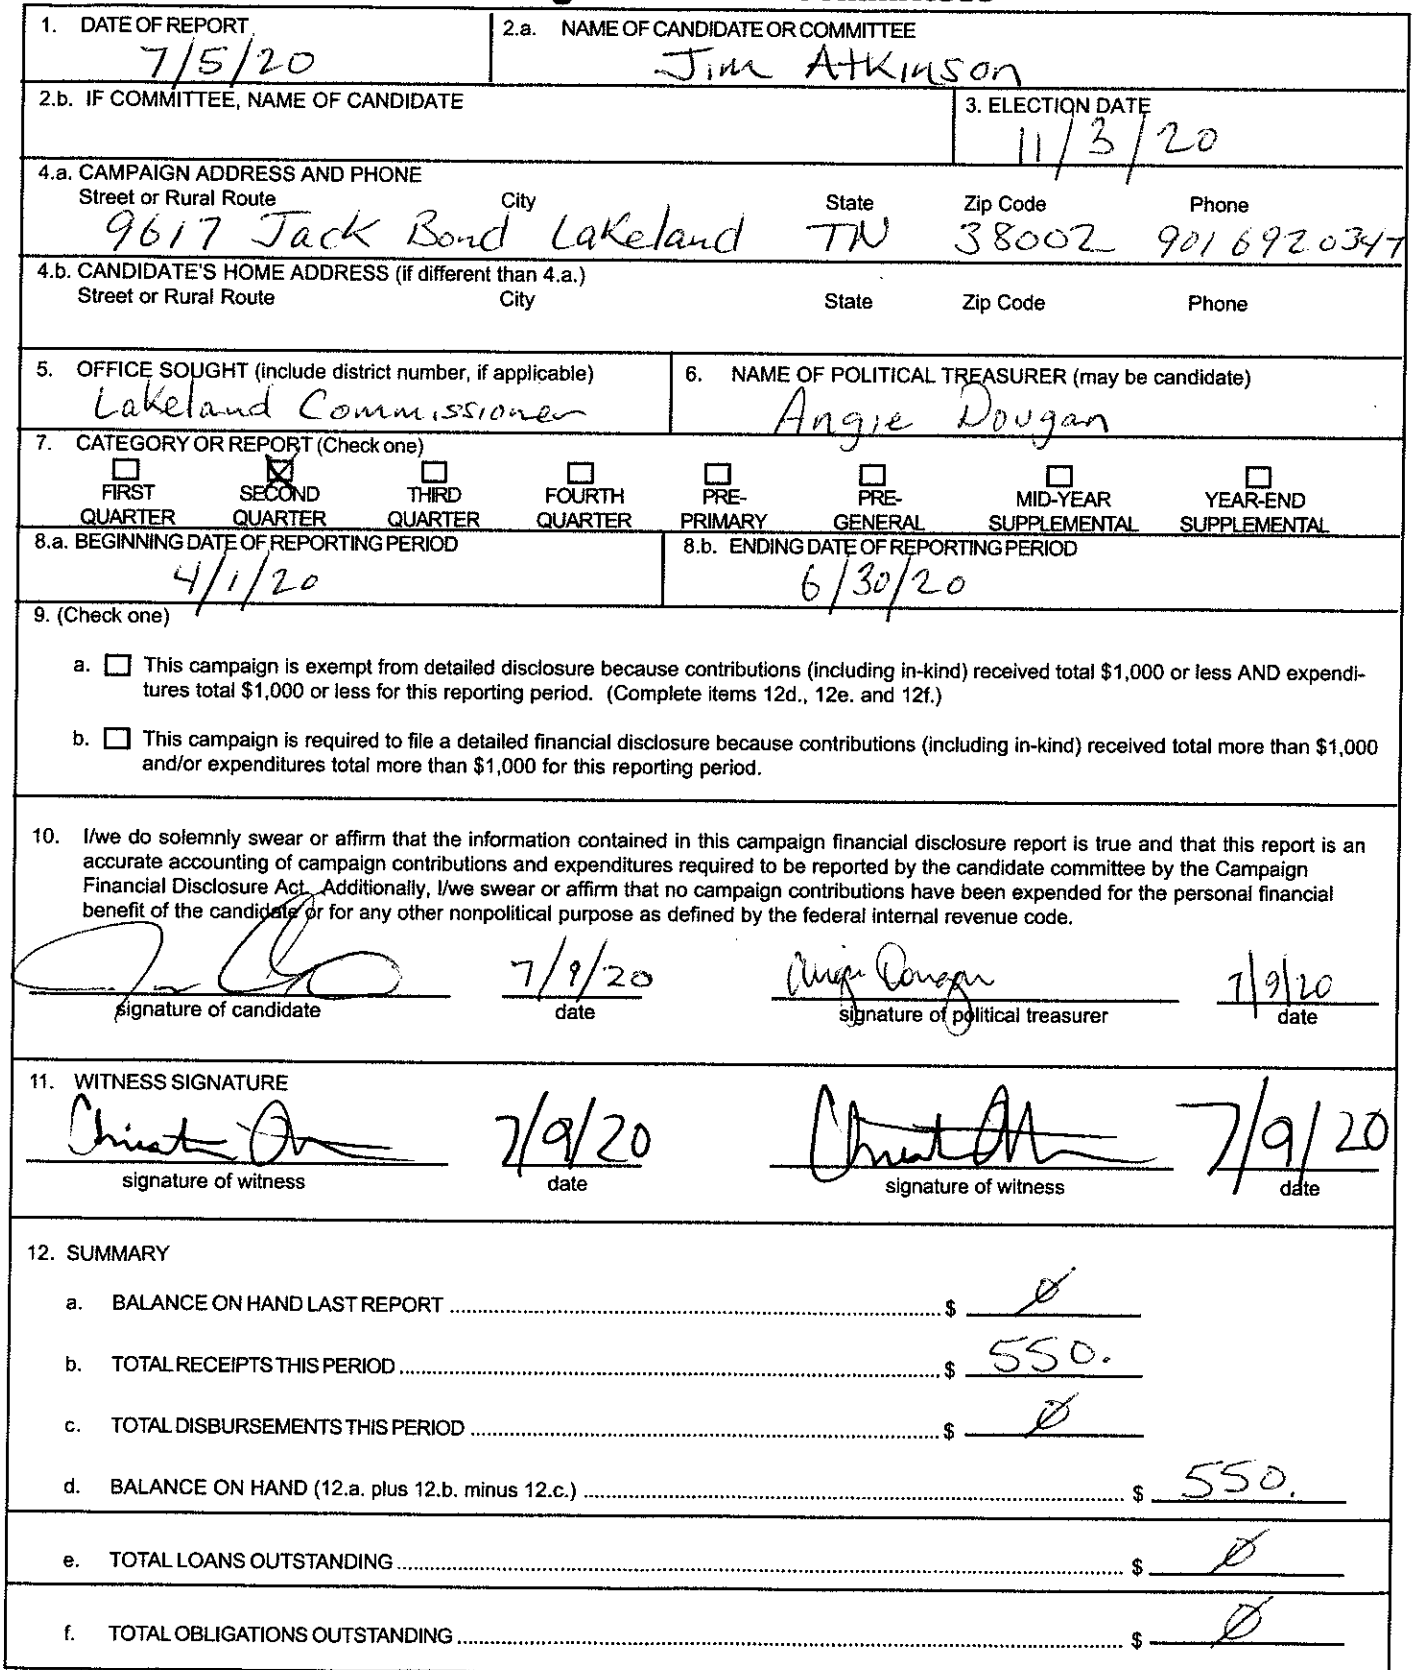 1. DATE OF REPORT
7/5/20
2.a. NAME OF CANDIDATE OR COMMITTEE
Jim Atkinson
2.b. IF COMMITTEE, NAME OF CANDIDATE
3. ELECTION DATE
11/3/20
4.a. CAMPAIGN ADDRESS AND PHONE
Street or Rural Route City State Zip Code Phone
9617 Jack Bond Lakeland TN 38002 9016920347
4.b. CANDIDATE'S HOME ADDRESS (if different than 4.a.)
Street or Rural Route City State Zip Code Phone
5. OFFICE SOUGHT (include district number, if applicable)
Lakeland Commissioner
6. NAME OF POLITICAL TREASURER (may be candidate)
Angie Dougan
7. CATEGORY OR REPORT (Check one)
FIRST SECOND THIRD FOURTH PRE- PRE- MID-YEAR YEAR-END
QUARTER QUARTER QUARTER QUARTER PRIMARY GENERAL SUPPLEMENTAL SUPPLEMENTAL
8.a. BEGINNING DATE OF REPORTING PERIOD
4/1/20
8.b. ENDING DATE OF REPORTING PERIOD
6/30/20
9. (Check one)
a. This campaign is exempt from detailed disclosure because contributions (including in-kind) received total $1,000 or less AND expendi-
tures total $1,000 or less for this reporting period. (Complete items 12d., 12e. and 12f.)
b. This campaign is required to file a detailed financial disclosure because contributions (including in-kind) received total more than $1,000
and/or expenditures total more than $1,000 for this reporting period.
10. I/we do solemnly swear or affirm that the information contained in this campaign financial disclosure report is true and that this report is an
accurate accounting of campaign contributions and expenditures required to be reported by the candidate committee by the Campaign
Financial Disclosure Act. Additionally, I/we swear or affirm that no campaign contributions have been expended for the personal financial
benefit of the candidate or for any other nonpolitical purpose as defined by the federal internal revenue code.
7/9/20 Angie Dougan 7/9/20
signature of candidate date signature of political treasurer date
11. WITNESS SIGNATURE
7/9/20 7/9/20
signature of witness date signature of witness date
12. SUMMARY
a. BALANCE ON HAND LAST REPORT $ Ø
b. TOTAL RECEIPTS THIS PERIOD $ 550.
c. TOTAL DISBURSEMENTS THIS PERIOD $ Ø
d. BALANCE ON HAND (12.a. plus 12.b. minus 12.c.) $ 550.
e. TOTAL LOANS OUTSTANDING $ Ø
f. TOTAL OBLIGATIONS OUTSTANDING $ Ø